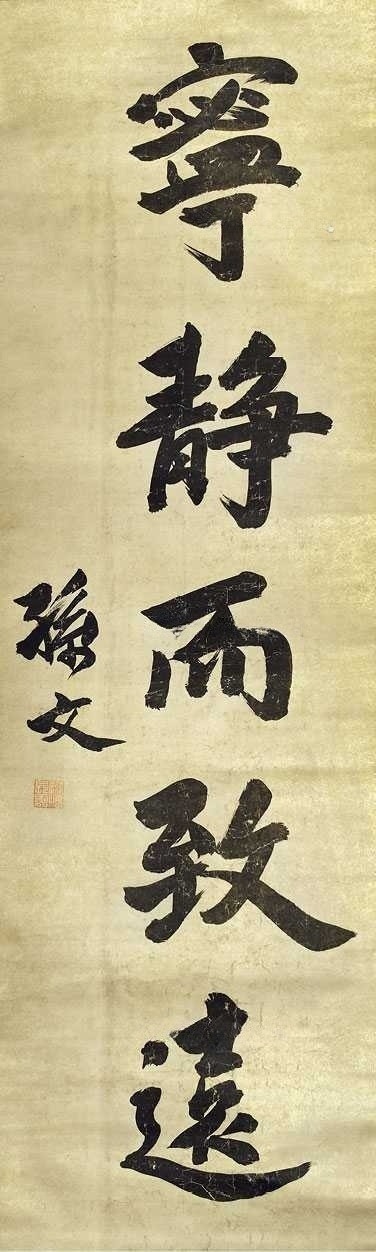 寧靜而致遠
孫文